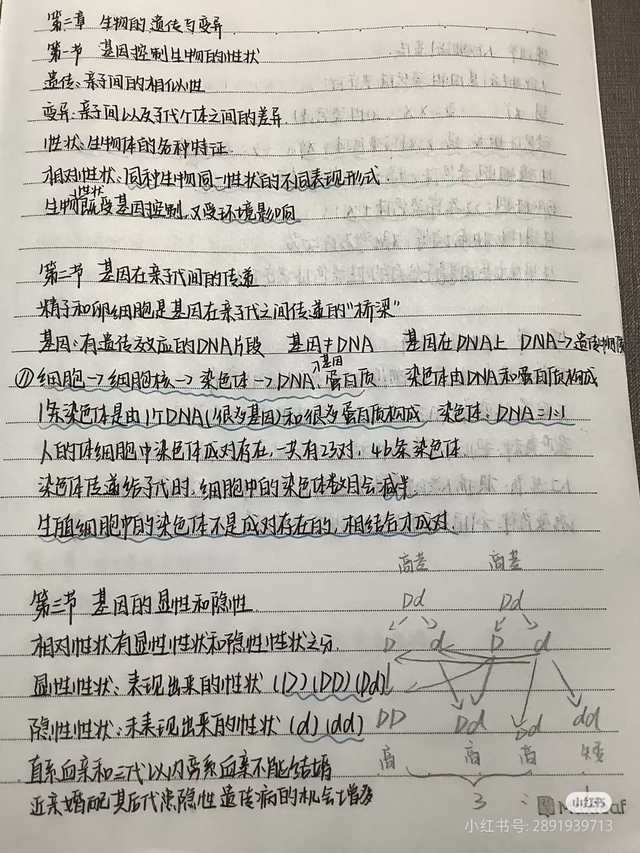 第二章 生物的遗传与变异
第一节 基因控制生物的性状
遗传:亲子间的相似性
变异:亲子间以及子代个体之间的差异
性状:生物体的各种特征
相对性状:同种生物同一性状的不同表现形式
生物性状既受基因控制,又受环境影响
第二节 基因在亲子代间的传递
精子和卵细胞是基因在亲子代之间传递的“桥梁”
基因:有遗传效应的DNA片段 基因≠DNA 基因在DNA上 DNA→遗传物质
⑪细胞→细胞核→染色体→DNA、蛋白质 染色体由DNA和蛋白质构成
基因
1条染色体是由1个DNA(很多基因)和很多蛋白质构成 染色体:DNA=1:1
人的体细胞中染色体成对存在,一共有23对,46条染色体
染色体传递给子代时,细胞中的染色体数目会减半
生殖细胞中的染色体不是成对存在的,相结后才成对.
高茎 高茎
第三节 基因的显性和隐性 Dd Dd
相对性状有显性性状和隐性性状之分. D d D d
显性性状:表现出来的性状(D)(DD)(Dd)
隐性性状:未表现出来的性状(d)(dd) DD Dd Dd dd
直系血亲和三代以内旁系血亲不能结婚 高 高 高 矮
近亲婚配其后代患隐性遗传病的机会增多 3 : 1
小红书
小红书号: 2891939713